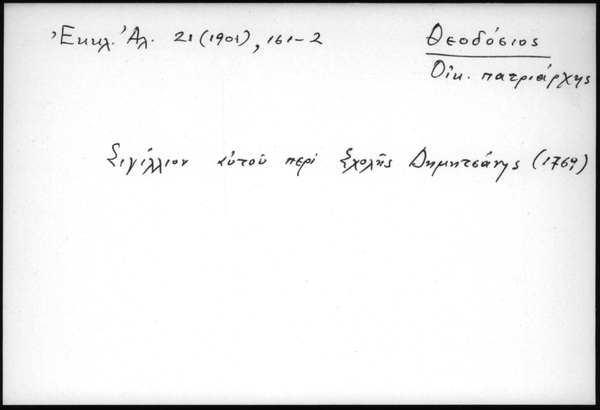 Ἐκκλ. Ἀλ. 21 (1901), 161-2
Θεοδόσιος
Οἰκ. πατριάρχης
Σιγίλλιον αὐτοῦ περὶ Σχολῆς Δημητσάνης (1769)